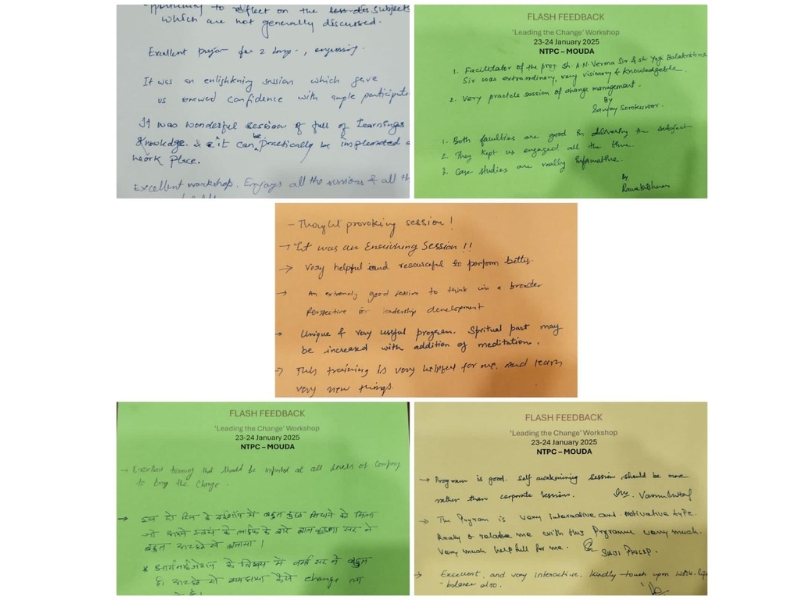 opportunity to reflect on the less dis subjects
which are not generally discussed.
Excellent for 2 days, engrossing.
It was an enlightening session which gave
us renewed confidence with ample participate
It was wonderful session of full of Learnings
Knowledge. & it can be Practically be implemented
work place.
Excellent workshop. Enjoys all the sessions & all
FLASH FEEDBACK
'Leading the Change' Workshop
23-24 January 2025
NTPC – MOUDA
1. Facilitator of the prog. Sh. A.N. Verma Sir & Sh. Yogi Balakrishna
Sir was extraordinary, very visionary & Knowledgeable.
2. Very practical session of change management.
By
Sanjay
1. Both faculties are good in delivering the subject
2. They kept us engaged all the time.
3. Case studies are really informative.
By
Ramakrishnan
- Thought provoking session!
→ It was an Enriching Session!!
→ Very helpful and resourceful to perform better.
→ An extremely good session to think in a broader
perspective for leadership development
→ Unique & very useful program. Spritual part may
be increased with addition of meditations.
→ This training is very helpful for me. and learn
very new things
FLASH FEEDBACK
'Leading the Change' Workshop
23-24 January 2025
NTPC – MOUDA
- Excellent training and should be imparted at all levels of Company
to bring the change.
→ इस दो दिन के में बहुत कुछ सीखने को मिला
के बारे में सर ने
बहुत अच्छे से बताया।
* के विषय में वर्मा सर ने बहुत
ही अच्छे से समझाया change
FLASH FEEDBACK
'Leading the Change' Workshop
23-24 January 2025
NTPC – MOUDA
→ Program is good. Self awakening session should be more
rather than corporate session.
→ The Program is very Interactive and Motivative type
Really & relate me with this Programme very much.
Very much helpfull for me. Philip.
→ Excellent, and very interactive. Kindly touch upon work-life
balance also.